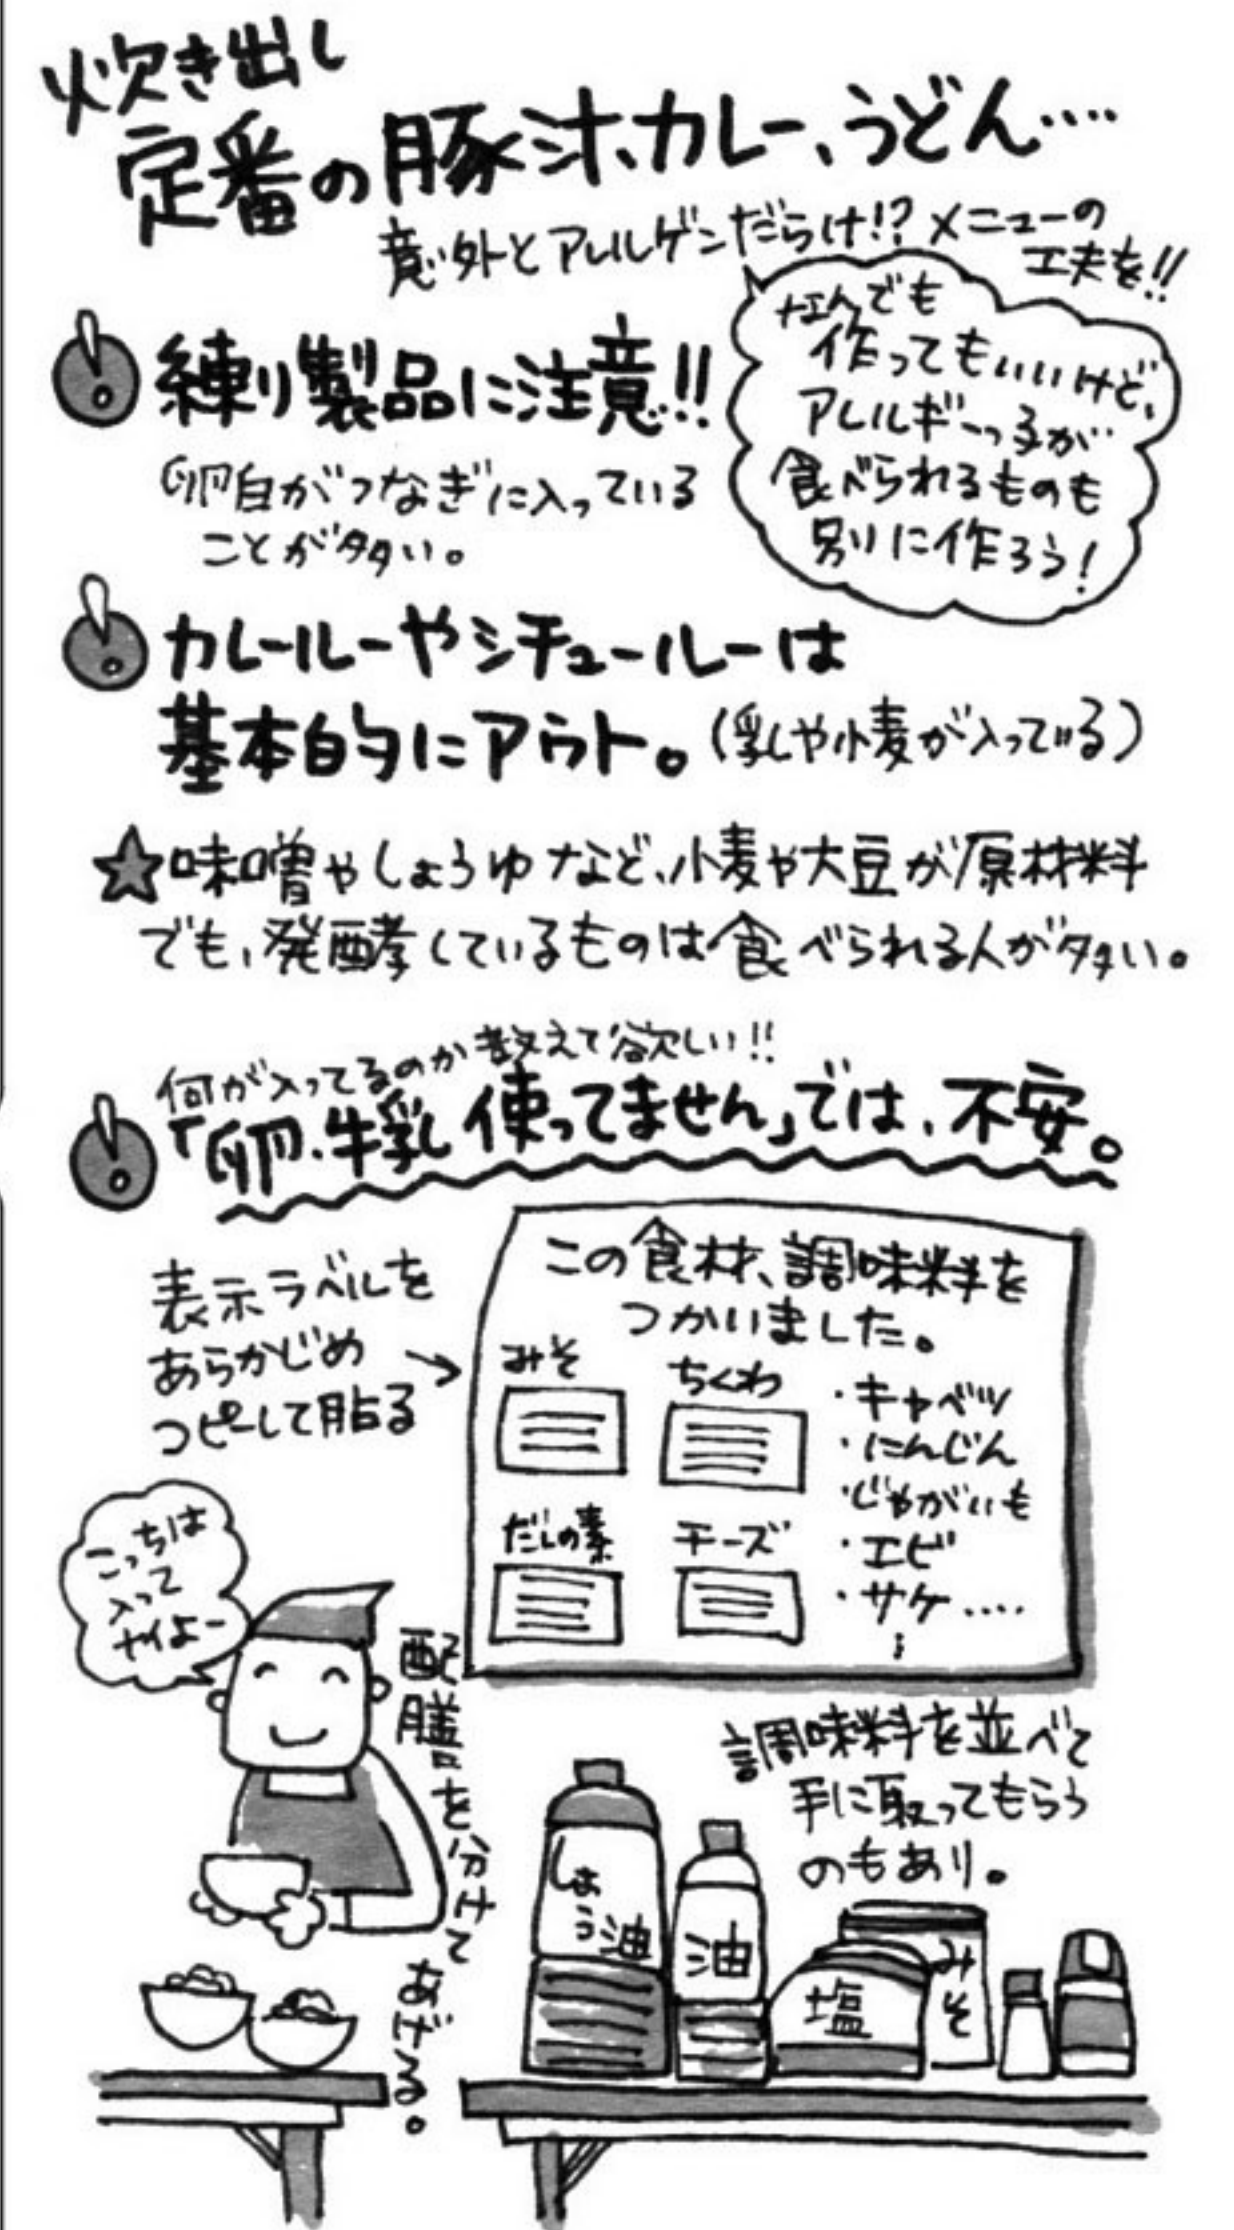 炊き出し
定番の豚汁、カレー、うどん‥‥
意外とアレルゲンだらけ!? メニューの
工夫を!!
なんでも
作ってもいいけど、
アレルギーっ子が
食べられるものも
別に作ろう!
練り製品に注意!!
卵白がつなぎに入っている
ことが多い。
カレールーやシチュールーは
基本的にアウト。(乳や小麦が入っている)
☆味噌やしょうゆなど、小麦や大豆が原材料
でも、発酵しているものは食べられる人が多い。
何が入ってるのか教えて欲しい!!
「卵、牛乳使ってません」では、不安。
表示ラベルを
あらかじめ
コピーして貼る
→
この食材、調味料を
つかいました。
みそ
ちくわ
だしの素
チーズ
・キャベツ
・にんじん
・じゃがいも
・エビ
・サケ‥‥
こっちは
入って
ナイよー
配膳を分けて
あげる。
調味料を並べて
手に取ってもらう
のもあり。
しょう油
油
塩
みそ